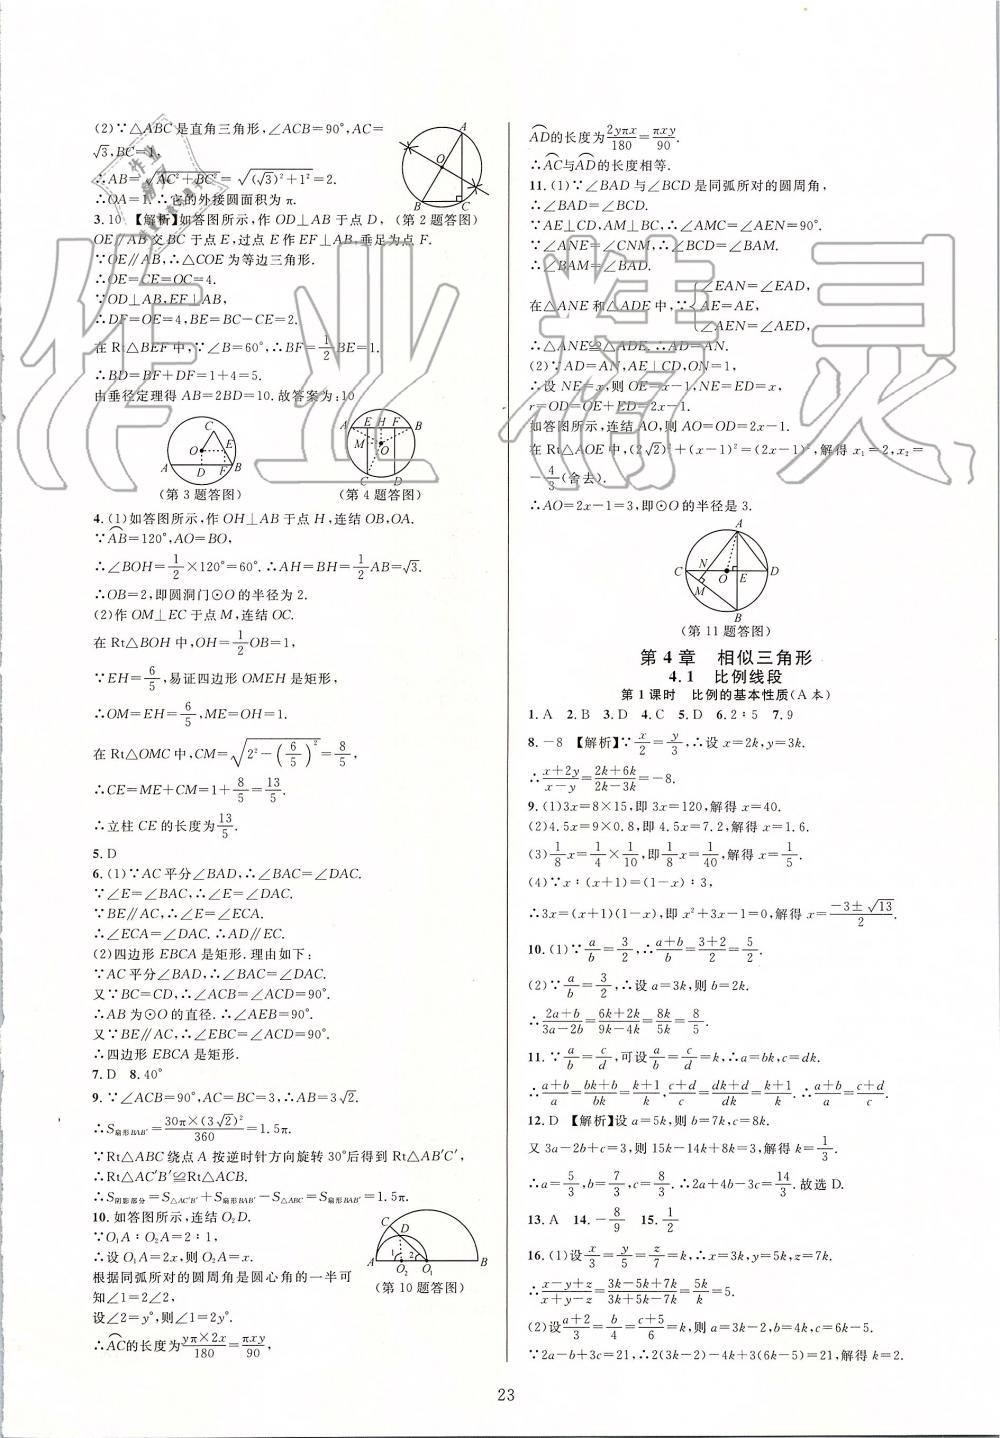 (2)∵△ABC是直角三角形,∠ACB=90°,AC=
√3,BC=1,
∴AB=√(AC²+BC²)=√((√3)²+1²)=2.
∴OA=1.∴它的外接圆面积为π.
(第2题答图)
3.10 【解析】如答图所示,作OD⊥AB于点D,
OE∥AB交BC于点E,过点E作EF⊥AB,垂足为点F.
∵OE∥AB,∴△COE为等边三角形.
∴OE=CE=OC=4.
∵OD⊥AB,EF⊥AB,
∴DF=OE=4,BE=BC-CE=2.
在Rt△BEF中,∵∠B=60°,∴BF=1/2BE=1.
∴BD=BF+DF=1+4=5.
由垂径定理得AB=2BD=10.故答案为:10
(第3题答图) (第4题答图)
4.(1)如答图所示,作OH⊥AB于点H,连结OB,OA.
∵⌒AB=120°,AO=BO,
∴∠BOH=1/2×120°=60°.∴AH=BH=1/2AB=√3.
∴OB=2,即圆洞门⊙O的半径为2.
(2)作OM⊥EC于点M,连结OC.
在Rt△BOH中,OH=1/2OB=1,
∵EH=6/5,易证四边形OMEH是矩形,
∴OM=EH=6/5,ME=OH=1.
在Rt△OMC中,CM=√(2²-(6/5)²)=8/5,
∴CE=ME+CM=1+8/5=13/5.
∴立柱CE的长度为13/5.
5.D
6.(1)∵AC平分∠BAD,∴∠BAC=∠DAC.
∵∠E=∠BAC,∴∠E=∠DAC.
∵BE∥AC,∴∠E=∠ECA.
∴∠ECA=∠DAC.∴AD∥EC.
(2)四边形EBCA是矩形.理由如下:
∵AC平分∠BAD,∴∠BAC=∠DAC.
又∵BC=CD,∴∠ACB=∠ACD=90°.
∴AB为⊙O的直径.∴∠AEB=90°.
又∵BE∥AC,∴∠EBC=∠ACD=90°.
∴四边形EBCA是矩形.
7.D 8.40°
9.∵∠ACB=90°,AC=BC=3,∴AB=3√2.
∴S扇形BAB′=30π×(3√2)²/360=1.5π.
∵Rt△ABC绕点A按逆时针方向旋转30°后得到Rt△AB′C′,
∴Rt△AC′B′≌Rt△ACB.
∴S阴影部分=S△AC′B′+S扇形BAB′-S△ABC=S扇形BAB′=1.5π.
10.如答图所示,连结O₂D.
∵O₁A∶O₂A=2∶1,
∴设O₁A=2x,则O₂A=x.
根据同弧所对的圆周角是圆心角的一半可
知∠1=2∠2,
(第10题答图)
设∠2=y°,则∠1=2y°.
∴⌒AC的长度为yπ×2x/180=πxy/90,
⌒AD的长度为2yπx/180=πxy/90.
∴⌒AC与⌒AD的长度相等.
11.(1)∵∠BAD与∠BCD是同弧所对的圆周角,
∴∠BAD=∠BCD.
∵AE⊥CD,AM⊥BC,∴∠AMC=∠AEN=90°.
∵∠ANE=∠CNM,∴∠BCD=∠BAM.
∴∠BAM=∠BAD.
∠EAN=∠EAD,
在△ANE和△ADE中,∵{AE=AE,
∠AEN=∠AED,
∴△ANE≌△ADE.∴AD=AN.
(2)∵AD=AN,AE⊥CD,NA=1,
∴设NE=x,则OE=x-1,NE=ED=x,
r=OD=OE+ED=2x-1.
如答图所示,连结AO,则AO=OD=2x-1.
在Rt△AOE中,(2√2)²+(x-1)²=(2x-1)²,解得x₁=2,x₂=
-4/3(舍去).
∴AO=2x-1=3,即⊙O的半径是3.
(第11题答图)
第4章 相似三角形
4.1 比例线段
第1课时 比例的基本性质(A本)
1.A 2.B 3.D 4.C 5.D 6.2∶5 7.9
8.-8 【解析】∵x/2=y/3,∴设x=2k,y=3k.
∴x+2y/x-y=2k+6k/2k-3k=-8.
9.(1)3x=8×15,即3x=120,解得x=40.
(2)4.5x=9×0.8,即4.5x=7.2,解得x=1.6.
(3)1/8x=1/4×1/10,即1/8x=1/40,解得x=1/5.
(4)∵x∶(x+1)=(1-x)∶3,
∴3x=(x+1)(1-x),即x²+3x-1=0,解得x=-3±√13/2.
10.(1)∵a/b=3/2,∴a+b/b=3+2/2=5/2.
(2)∵a/b=3/2,∴设a=3k,则b=2k.
∴2a+b/3a-2b=6k+2k/9k-4k=8k/5k=8/5.
11.∵a/b=c/d,可设a/b=c/d=k,∴a=bk,c=dk.
∴a+b/a=bk+b/bk=k+1/k,c+d/c=dk+d/dk=k+1/k.∴a+b/a=c+d/c.
12.D 【解析】设a=5k,则b=7k,c=8k.
又3a-2b+c=3,则15k-14k+8k=3,解得k=1/3.
∴a=5/3,b=7/3,c=8/3.∴2a+4b-3c=14/3.故选D.
13.A 14.-8/9 15.1/2
16.(1)设x/3=y/5=z/7=k,∴x=3k,y=5k,z=7k.
∴x-y+z/x+y-z=3k-5k+7k/3k+5k-7k=5k/k=5.
(2)设a+2/3=b/4=c+5/6=k,则a=3k-2,b=4k,c=6k-5.
∵2a-b+3c=21,∴2(3k-2)-4k+3(6k-5)=21,解得k=2.
23
作业精灵